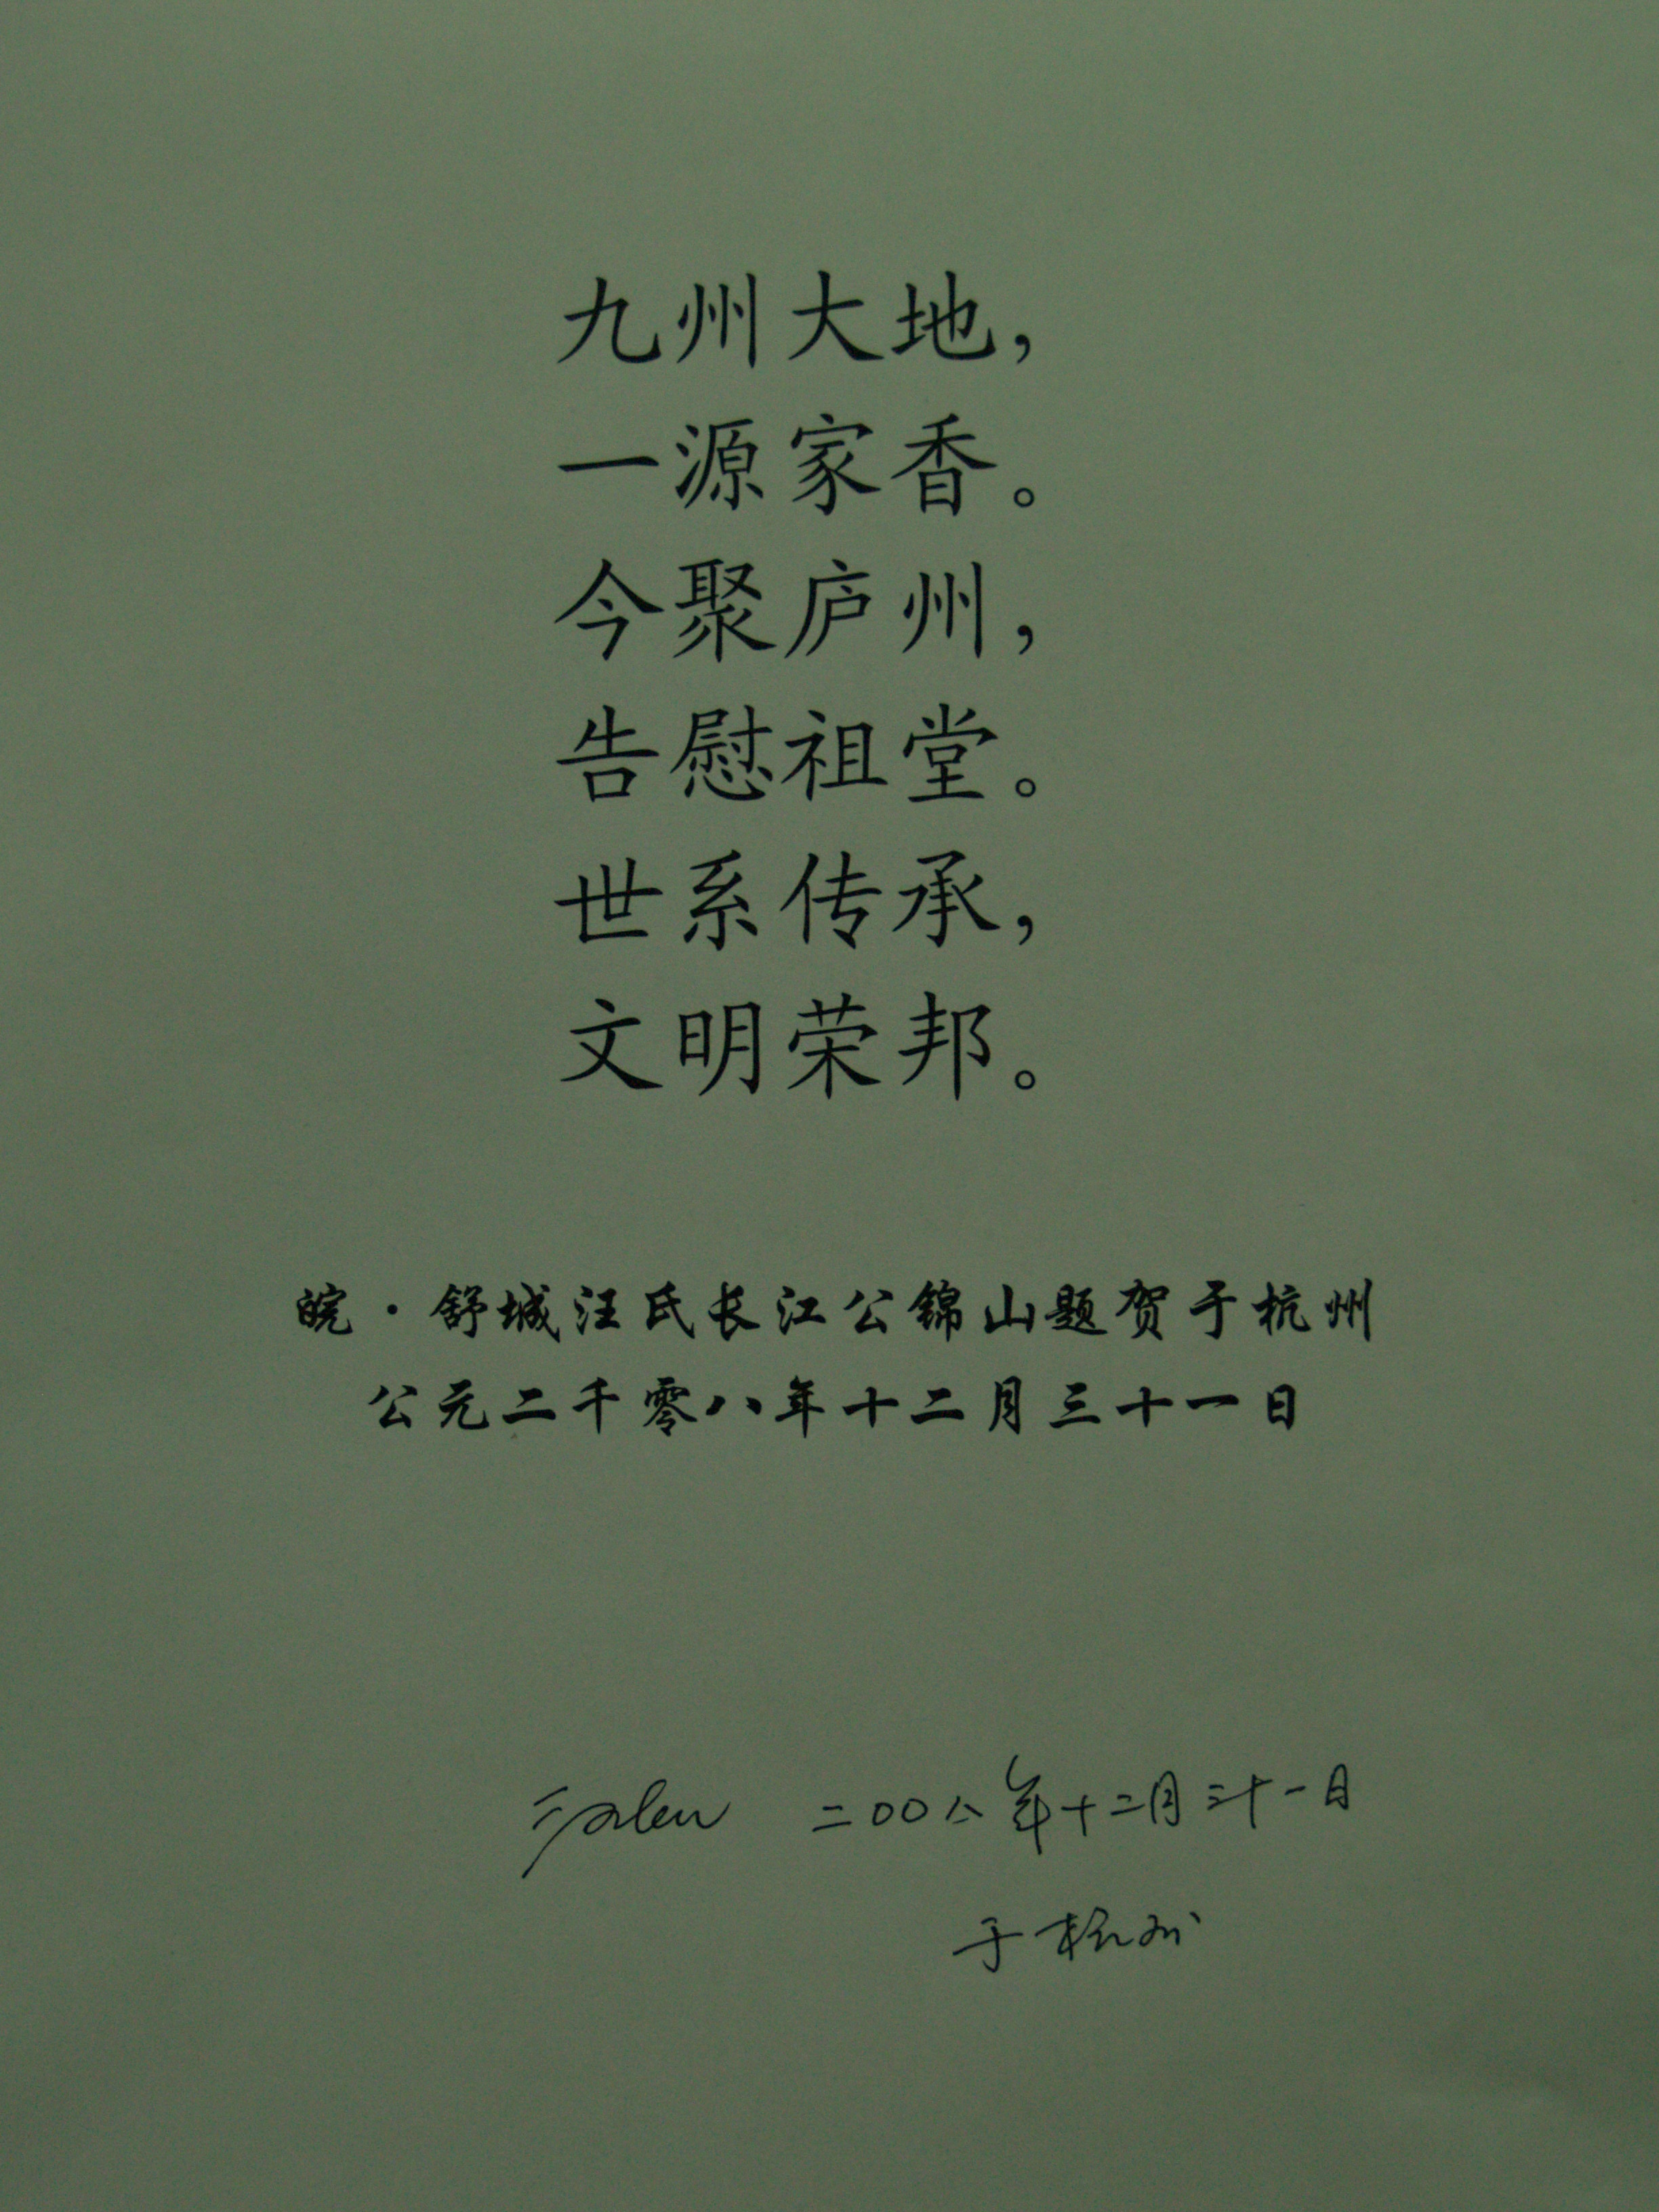 九州大地，
一源家香。
今聚庐州，
告慰祖堂。
世系传承，
文明荣邦。
皖·舒城汪氏长江公锦山题贺于杭州
公元二千零八年十二月三十一日
二〇〇八年十二月三十一日
于杭州